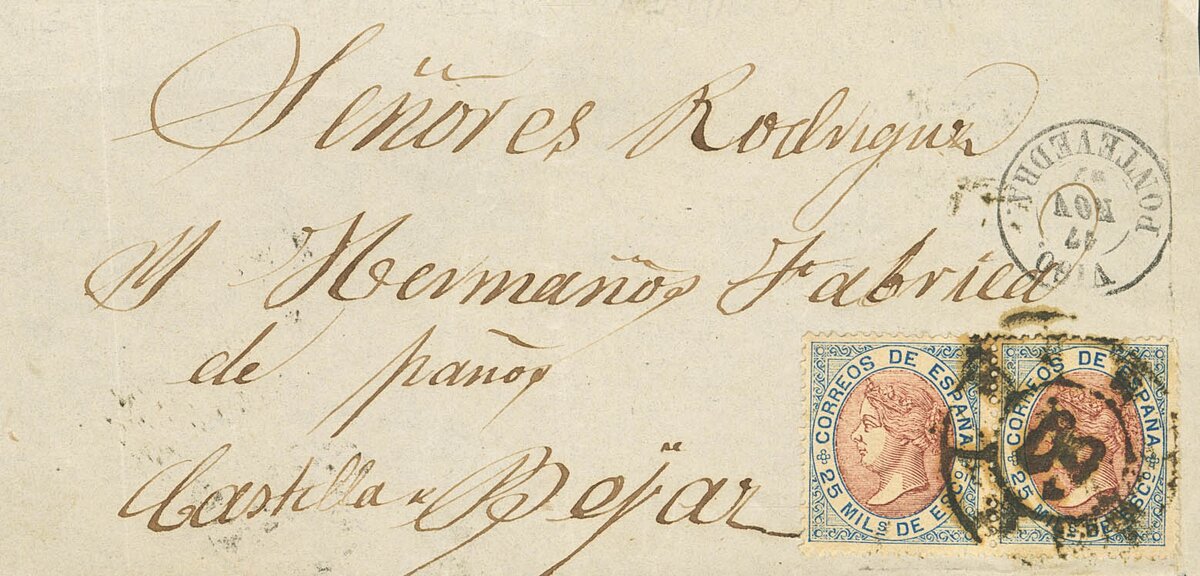 Señores Rodriguez
y Hermaños Fabrica
de paños
Castilla Bejar
PONTEVEDRA
17
NOV
67
VIGO
CORREOS DE ESPAÑA
25 MILS DE ESCO
CORREOS DE ESPAÑA
25 MILS DE ESCO